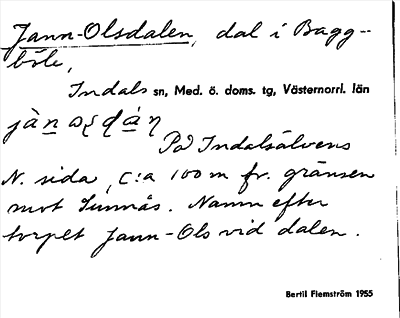 Jann-Olsdalen, dal i Bagg-
böle,
Indals sn, Med. ö. doms. tg, Västernorrl. län
På Indalsälvens
N. sida, c:a 100 m fr. gränsen
mot Sunnås. Namn efter
torpet Jann-Ols vid dalen.
Bertil Flemström 1955